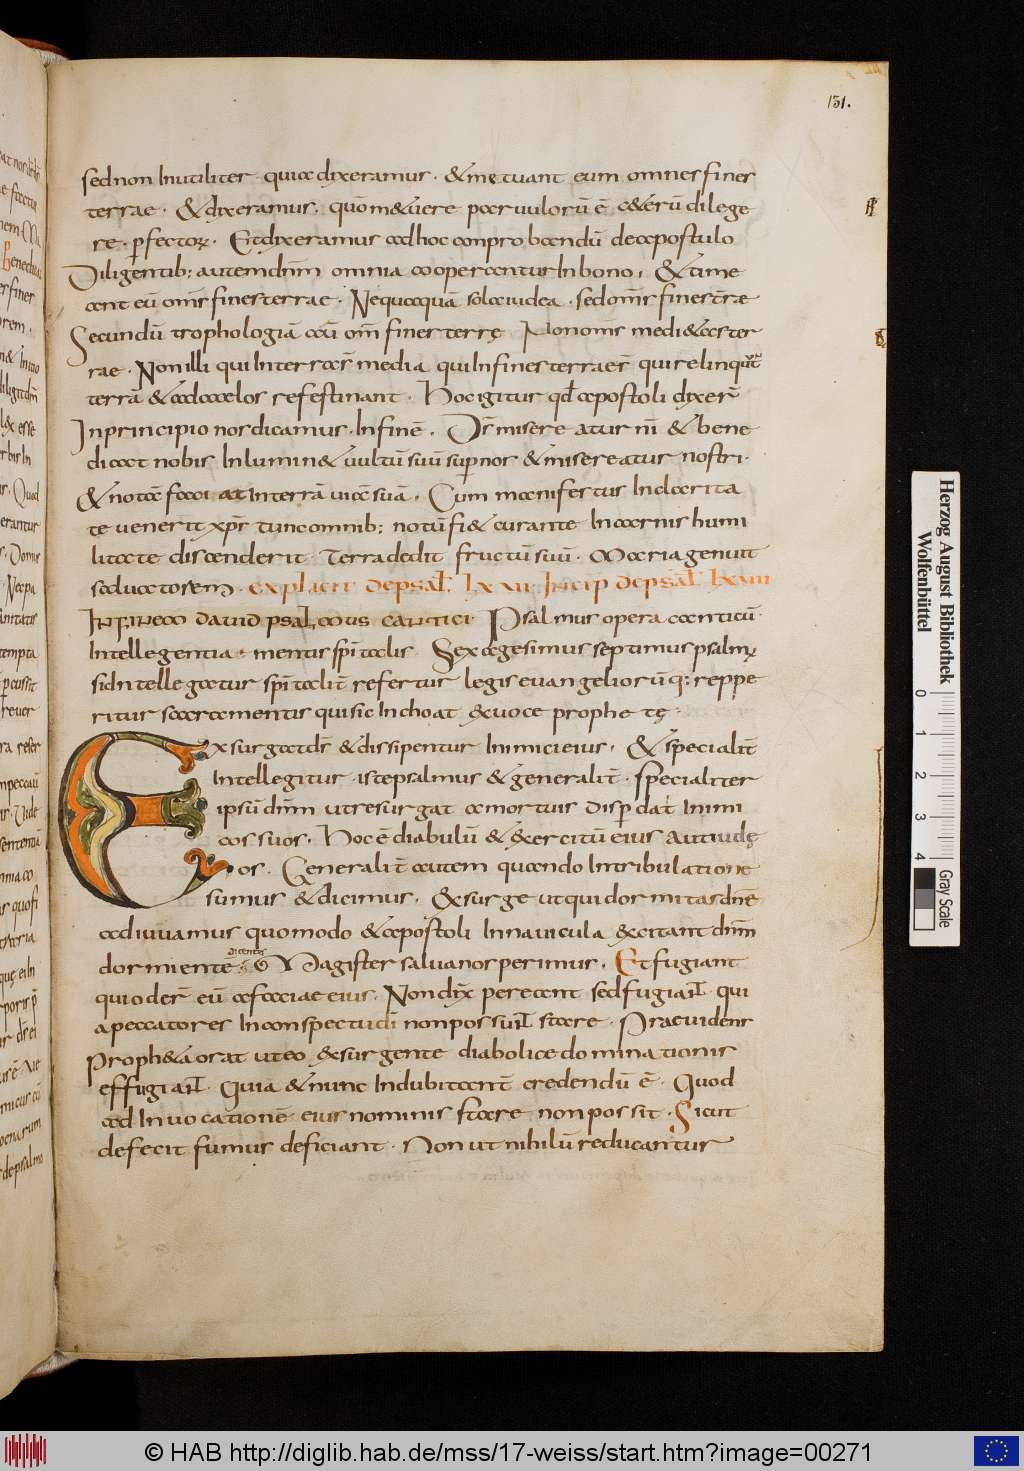 131.
sed non Inutiliter · quia dixeramus · & metuant eum omnes fines
terrae · & dixeramus · quom& uere paruulorū ē c&erū dilege
re · ꝑfectoꝝ · Et dixeramus ad hoc conprobandū de apostulo
Diligentib; autem dn̄m omnia cooperantur In bono, & time
ant eū om̄s fines terrae · Nequaquā sola iudea · sed om̄s fines t̄rae
Secundū trophologiā om̄ fines terrę Non om̄s medi&as ter
rae · Non illi qui In terras media qui In fines terrae s̄ qui relinquūt
terrā & ad caelos refestinant · Hoc igitur qđ apostoli dixer̄
In principio nos dicamus · In finē · Ds̄ misereatur nr̄i & bene
dicat nobis Inlumin& uultū suū suꝑ nos & misereatur nostri ·
& nota faciat In terrā uiā suā, Cum manifestus In clarita
te uenerit xp̄s tunc omnib; notū fi& curante In carnis humi
litate discenderit · Terra dedit fructū suū · Maria genuit
saluatorem · explicit de psal̄ lxvi Incip de psal̄ lxvii
IN FINEM DAVID PSALMUS CANTICI · Psalmus opera canticū ·
Intellegentia · mentis sp̄italis Sexagesimus septimus psalmꝰ
si Intellegatur sp̄italit̄ refertus legis euangeliorū q; reppe
ritur sacramentis qui sic Inchoat ex uoce prophetę ·
Exsurgat ds̄ & dissipentur Inimici eius, & specialit̄
Intellegitur iste psalmus & generalit̄ · specialiter
ipsū dn̄m ut resurgat a mortuis disꝑdat Inimi
cos suos, Hoc ē diabulū & exercitū eius aut iudę
os · Generalit̄ autem quando In tribulatione
sumus & dicimus, Exsurge ut qui dormitas dn̄e
adiuuamus quomodo & apostoli In nauicula excitant dn̄m
dicentes
dormientē Magister salua nos perimus, Et fugiant
qui oder̄ eū a faciae eius · Non dix̄ pereant sed fugiant qui
a peccatores In conspectu di non possunt stare · Praeuidens
Proph&a orat ut eo exsurgente diabolice dominationis
effugiant · Quia & nunc Indubitant̄ credendū ē · Quod
ad Inuocationē eius nominis stare non possit · Sicut
defecit fumus deficiant · Non ut nihilū reducantur
Herzog August Bibliothek
Wolfenbüttel
0 1 2 3 4
Gray Scale
© HAB http://diglib.hab.de/mss/17-weiss/start.htm?image=00271